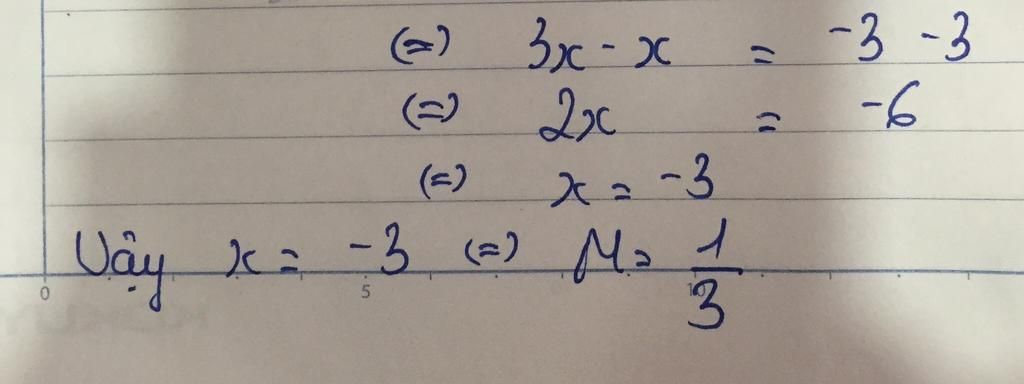 (=) 3x - x = -3 -3
(=) 2x = -6
(=) x = -3
Vậy x = -3 (=) M = 1/3
0 5